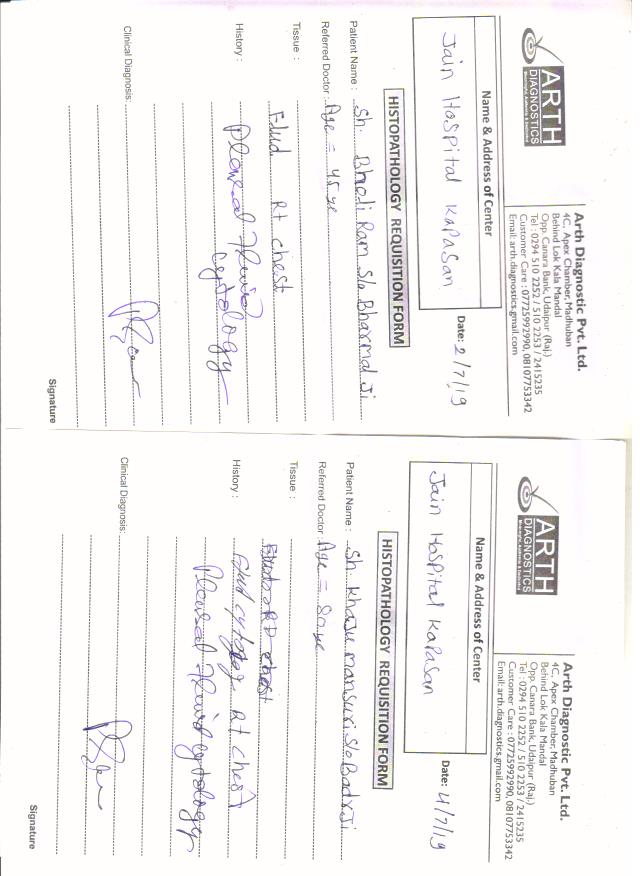 ARTH
DIAGNOSTICS
Arth Diagnostic Pvt. Ltd.
4C, Apex Chamber, Madhuban
Behind Lok Kala Mandal
Opp. Canara Bank, Udaipur (Raj.)
Tel : 0294 510 2252 / 510 2253 / 2415235
Customer Care : 07725992990, 08107753342
Email: arth.diagnostics.gmail.com
Name & Address of Center
Jain Hospital Kapasan
Date: 2/7/19
HISTOPATHOLOGY REQUISITION FORM
Patient Name : Sh. Bhodi Ram S/o Bharmal Ji
Referred Doctor : Age = 45 ye
Tissue :
Flud Rt chest
History : Pleural Fluid
Cytology
Clinical Diagnosis:
Signature
ARTH
DIAGNOSTICS
Arth Diagnostic Pvt. Ltd.
4C, Apex Chamber, Madhuban
Behind Lok Kala Mandal
Opp. Canara Bank, Udaipur (Raj.)
Tel : 0294 510 2252 / 510 2253 / 2415235
Customer Care : 07725992990, 08107753342
Email: arth.diagnostics.gmail.com
Name & Address of Center
Jain Hospital Kapasan
Date: 4/7/19
HISTOPATHOLOGY REQUISITION FORM
Patient Name : Sh Khaju mansuri S/o Badr Ji
Referred Doctor : Age = 80 ye
Tissue :
chest
History : Flud cytology Rt chest
Pleural Fluid Cytology
Clinical Diagnosis:
Signature